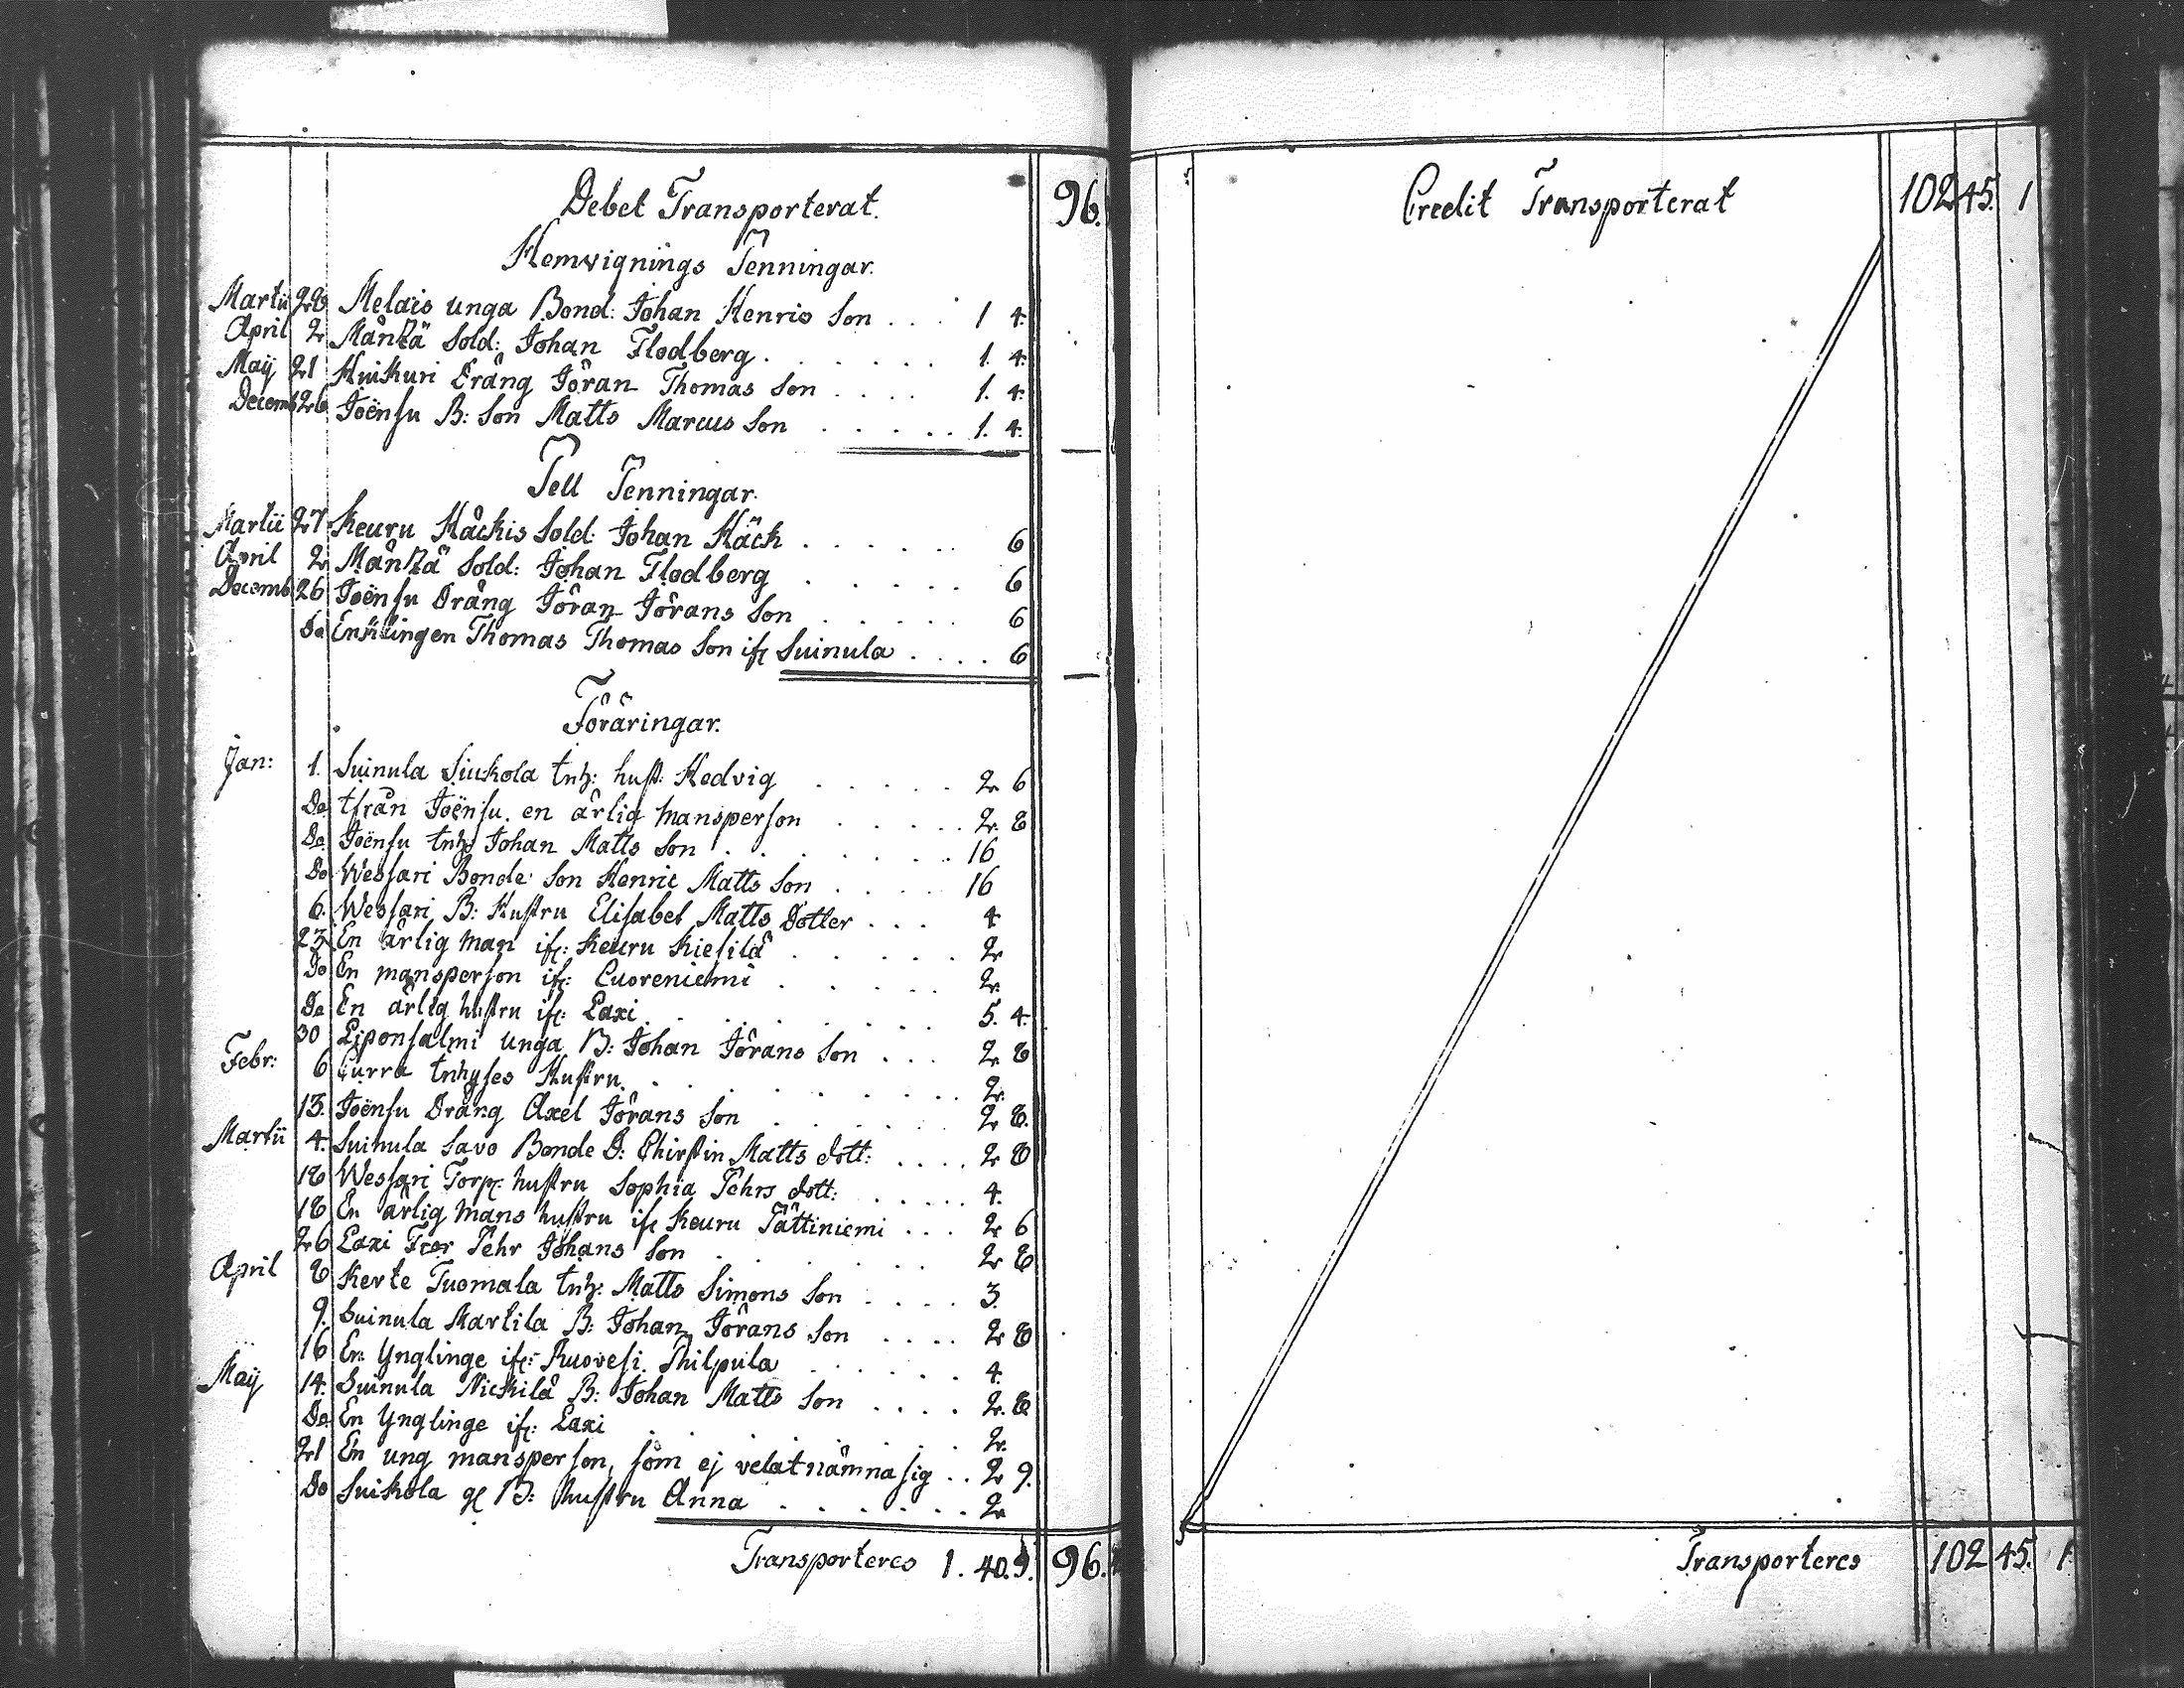 Debet Transporterat. 96.
Hemvignings Penningar.
Martii 28 Melais unga Bond: Johan Henrics Son . . . 1 4.
April 2 Mänttä Sold: Johan Flodberg . . . . . . . 1. 4.
Maÿ 21 Huikuri Dräng Jöran Thomas Son . . . . 1. 4.
Decemb 26 Joënsu B: Son Matts Marcus Son . . . . . 1. 4.
—
Tell Penningar.
Martii 27 Keuru Häckis Sold: Johan Häck . . . . . . 6
April 2 Mänttä Sold: Johan Flodberg . . . . . 6
Decemb. 26 Joënsu Dräng Jöran Jörans Son . . . . . 6
Do Enklingen Thomas Thomas Son ifr Suinula . . . . 6
—
Föräringar.
Jan: 1. Suinula Siukola Inh: hust: Hedvig . . . . . 2 6
Do ifrån Joënsu. en ärlig Mansperson . . . . . 2. 8
Do Joënsu Inh: Johan Matts Son . . . . . . . 16
Do Wessari Bonde Son Henric Matts Son . . . . 16
6. Wessari B: Hustru Elisabet Matts Dotter . . . 4
23 En ärlig Man ifr: Keuru Kiesilä . . . . . 2
Do En mansperson ifr: Luoreniemi . . . . . 2.
Do En ärlig hustru ifr: Laxi . . . . . . . . 5. 4.
30 Liponsalmi unga B: Johan Jörans Son . . . 2 8
Febr: 6 Curra Inhyses Hustru. . . . . . . . . 2.
13. Joënsu Dräng Axel Jörans Son . . . . . . 2 8.
Martii 4. Suinula Savo Bonde D: Chirstin Matts dott: . . . . 2 8
18 Wessari Torp: hustru Sophia Pehrs dott: . . . . . 4.
18 En ärlig Mans hustru ifr Keuru Pättiniemi . . . 2 6
26 Laxi Pehr Johans Son . . . . . . . 2 8
April 8 Kerte Tuomala Inh: Matts Simons Son . . . . 3.
9. Suinula Marttila B: Johan Jörans Son . . . . 2 8
16 En Ynglinge ifr: Ruovesi. Philpula . . . . . . 4.
Maÿ 14. Suinula Nickilä B: Johan Matts Son . . . . 2. 8
Do En Ynglinge ifr: Laxi . . . . . . . . . 2.
21 En ung mansperson, som ej velat nämna sig . . 2 9.
Do Suikola gl B: hustru Anna . . . . . . . 2
Transporteres 1. 40. 9. 96.
Credit Transporterat 102 45. 1
Transporteres 102 45. 1.